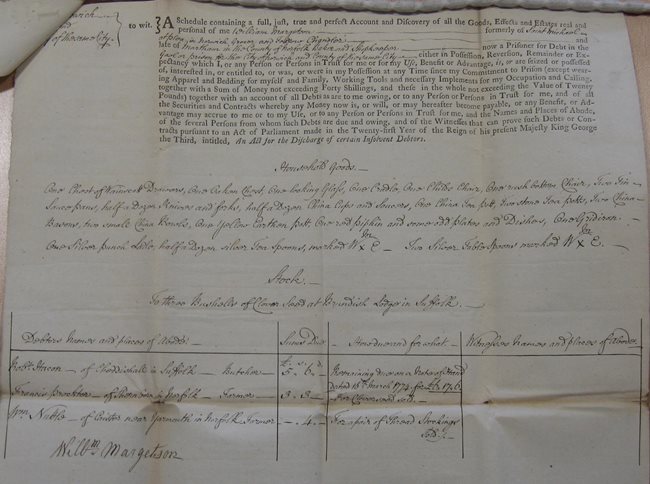 to wit.
A Schedule containing a full, just, true and perfect Account and Discovery of all the Goods, Effects and Estate real and
personal of me William Margetson formerly of Saint Michael
at in Norwich and
late of Martham in the County of Norfolk and Shopkeeper now a Prisoner for Debt in the
either in Possession, Reversion, Remainder or Ex-
pectancy which I, or any Person or Persons in Trust for me or for my Use, Benefit or Advantage, is, or are seized or possessed
of, interested in, or entitled to, or was, or were in my Possession at any Time since my Commitment to Prison (except wear-
ing Apparel and Bedding for myself and Family, Working Tools and necessary Implements for my Occupation and Calling,
together with a Sum of Money not exceeding Forty Shillings, and these in the whole not exceeding the Value of Twenty
Pounds) together with an account of all Debts as are to me owing, or to any Person or Persons in Trust for me, and of all
the Securities and Contracts whereby any Money now is, or will, or may hereafter become payable, or any Benefit, or Ad-
vantage may accrue to me or to my Use, or to any Person or Persons in Trust for me, and the Names and Places of Abode,
of the several Persons from whom such Debts are due and owing, and of the Witnesses that can prove such Debts or Con-
tracts pursuant to an Act of Parliament made in the Twenty-first Year of the Reign of his present Majesty King George
the Third, intitled, An Act for the Discharge of certain Insolvent Debtors.
Household Goods.
One Chest of Wainscott Drawers, One Oaken Chest, One looking Glass, One Cradle, One Childs Chair, One rush bottom Chair, Two Tin
Sauce pans, half a Dozen Knives and forks, half a Dozen China Cups and Saucers, One China Tea pott, two stone Tea potts, Two China
Basons, two small China Bowls, One Yellow Earthen pott, One red pipkin and some odd plates and Dishes, One Gridiron.
One Silver punch Ladle, half a Dozen silver Tea Spoons, marked W E Two Silver Table Spoons marked W E.
Stock.
To three Bushells of Clover Seed at Lodge in Suffolk
Debtors Names and places of Abode Sums Due How due and for what Witnesses Names and places of Abode
of in Suffolk Butcher 5 6 Remaining due on a Note of Hand
Dated 18th March 1774 for
Francis of in Norfolk Farmer 3 3 For Clover seed sold.
Wm. Noble of Caister near Yarmouth in Norfolk Farmer 4 For a pair of Thread Stockings
sold.
Willm. Margetson